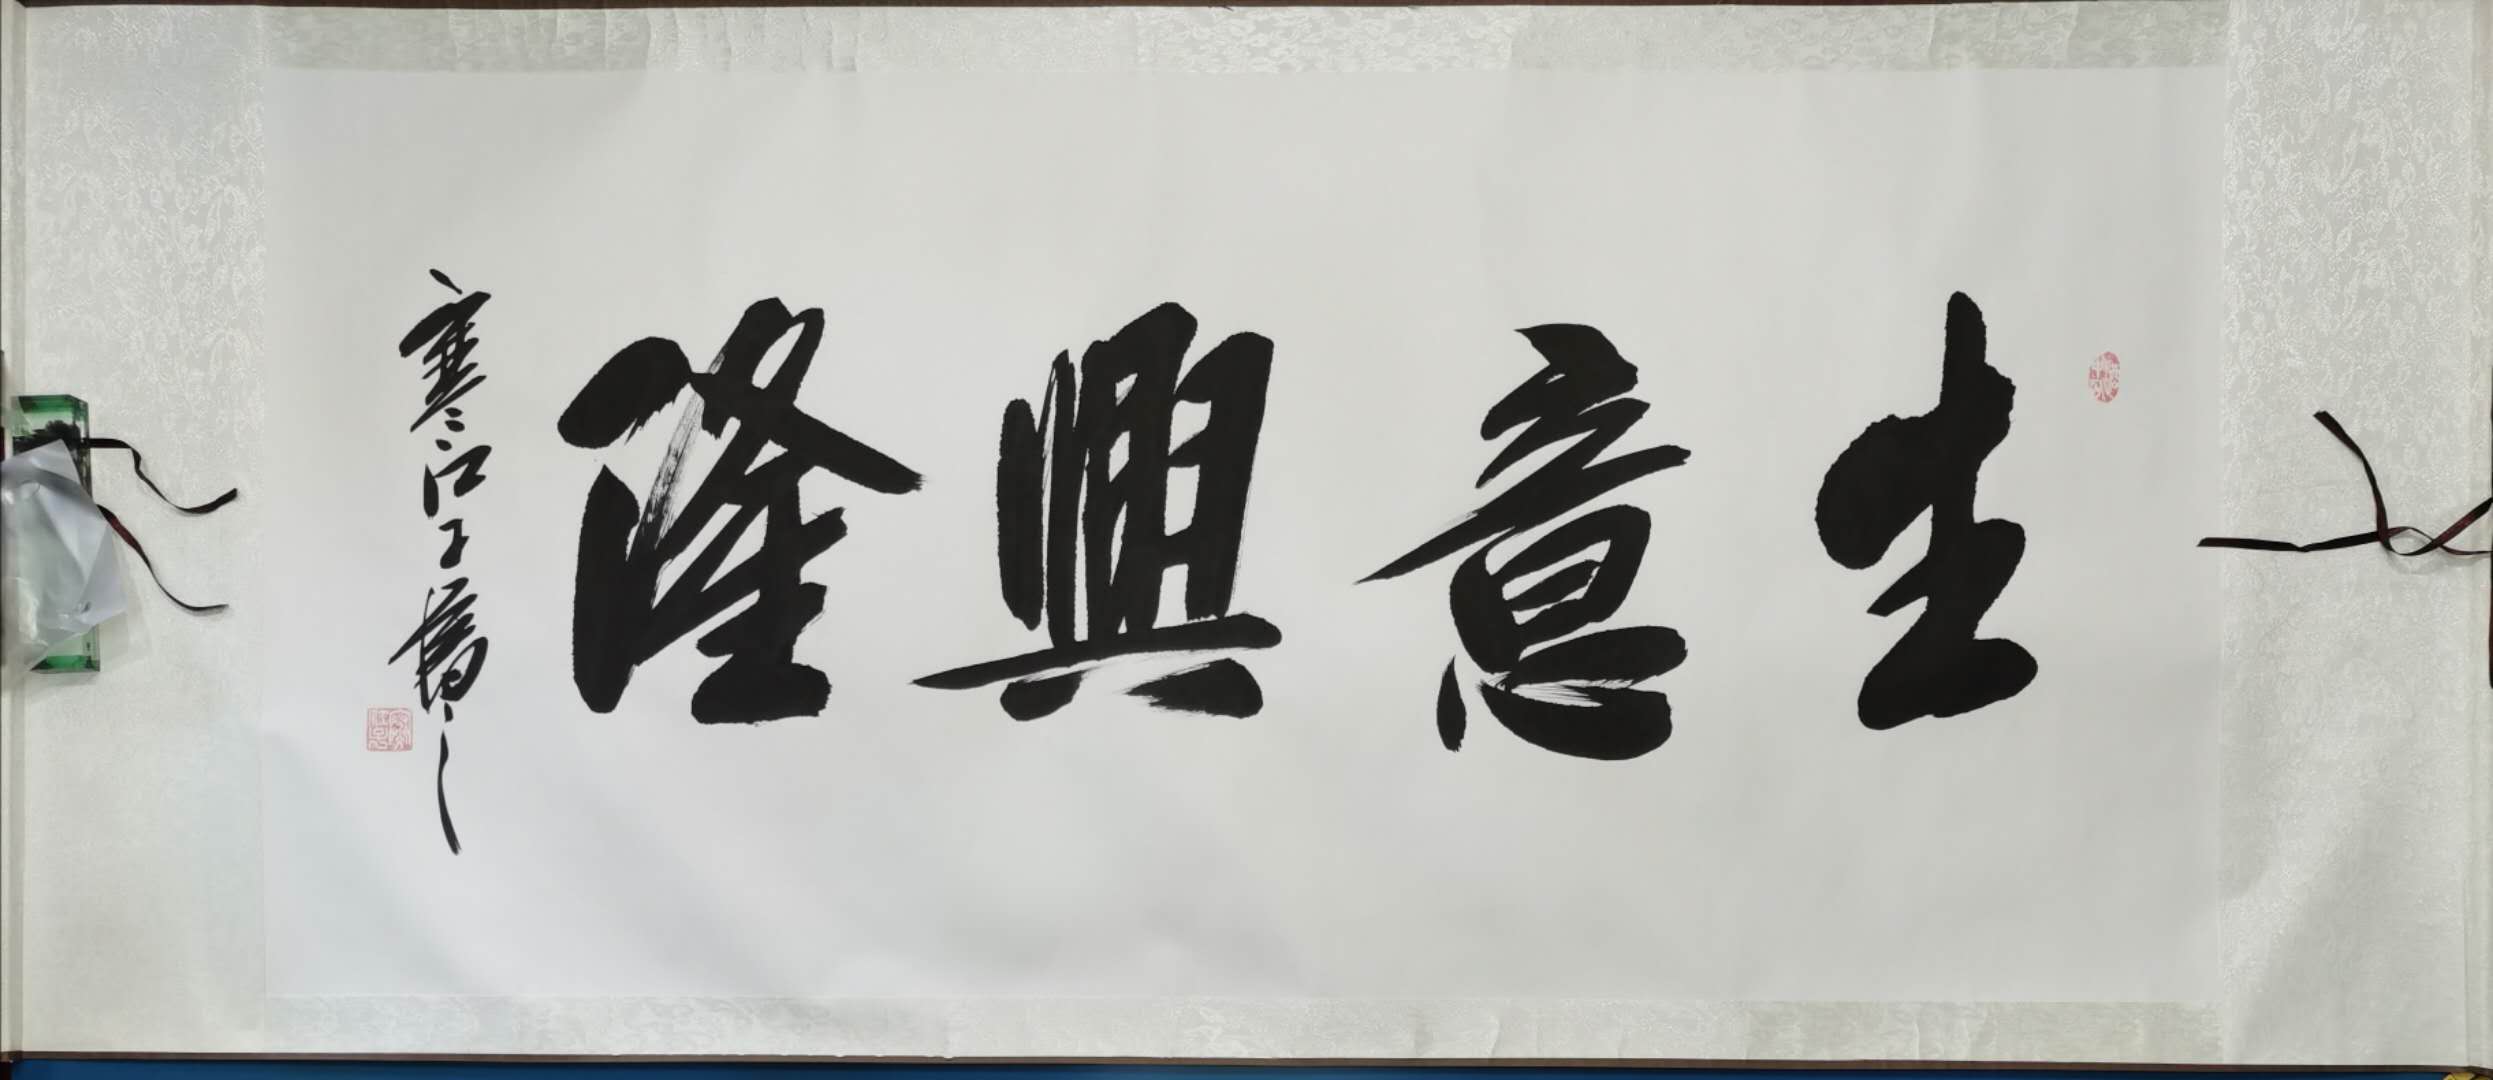 生意興隆
寒江子書